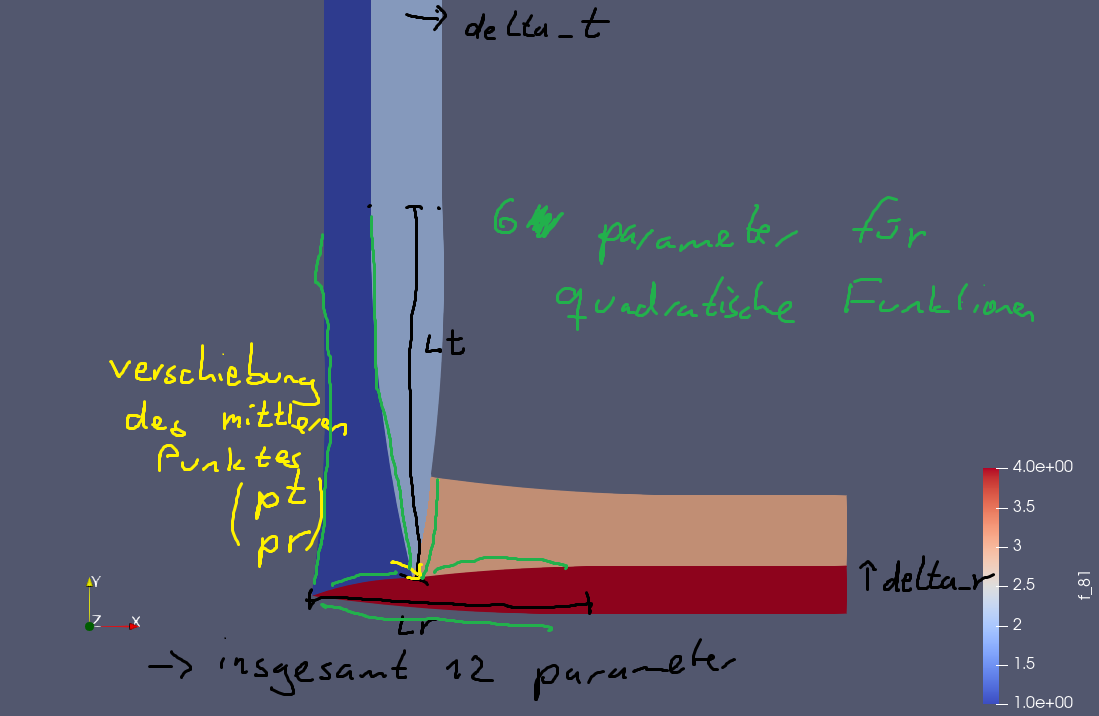 → delta_t
6 parameter für
quadratische Funktionen
Lt
verschiebung
des mittleren
Punktes
(pt
pr)
↑delta_r
Lr
-> insgesamt 12 parameter
Y
Z X
4.0e+00
3.5
3
2.5
2
1.5
1.0e+00
f_81